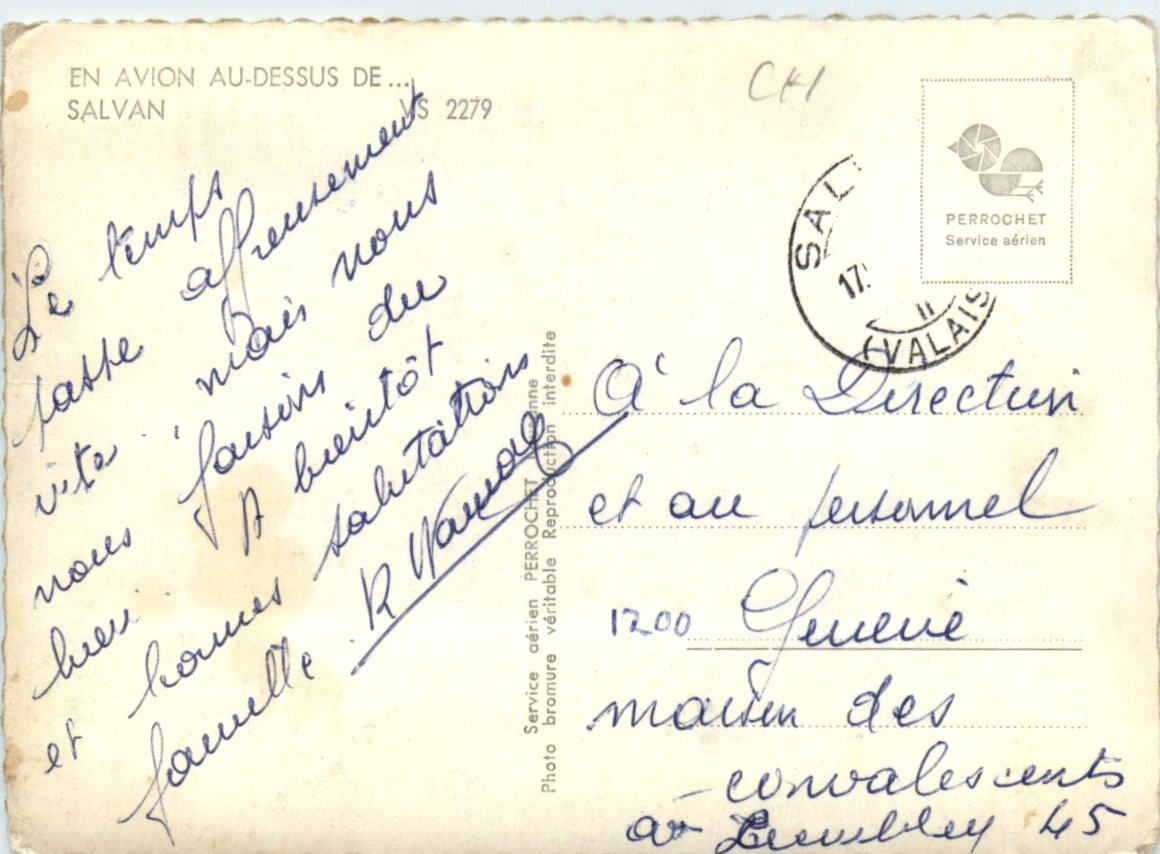 EN AVION AU-DESSUS DE...
SALVAN VS 2279
CH
Le temps
passe affreusement
vite mais nous
nous faisons du
bien. A bientôt
et bonnes salutations
famille R
Service aérien PERROCHET
Photo bromure véritable Reproduction interdite
PERROCHET
Service aérien
SAL
17.
II
(VALAIS
A la Direction
et au personnel
1200 Genève
maison des
convalescents
av 45